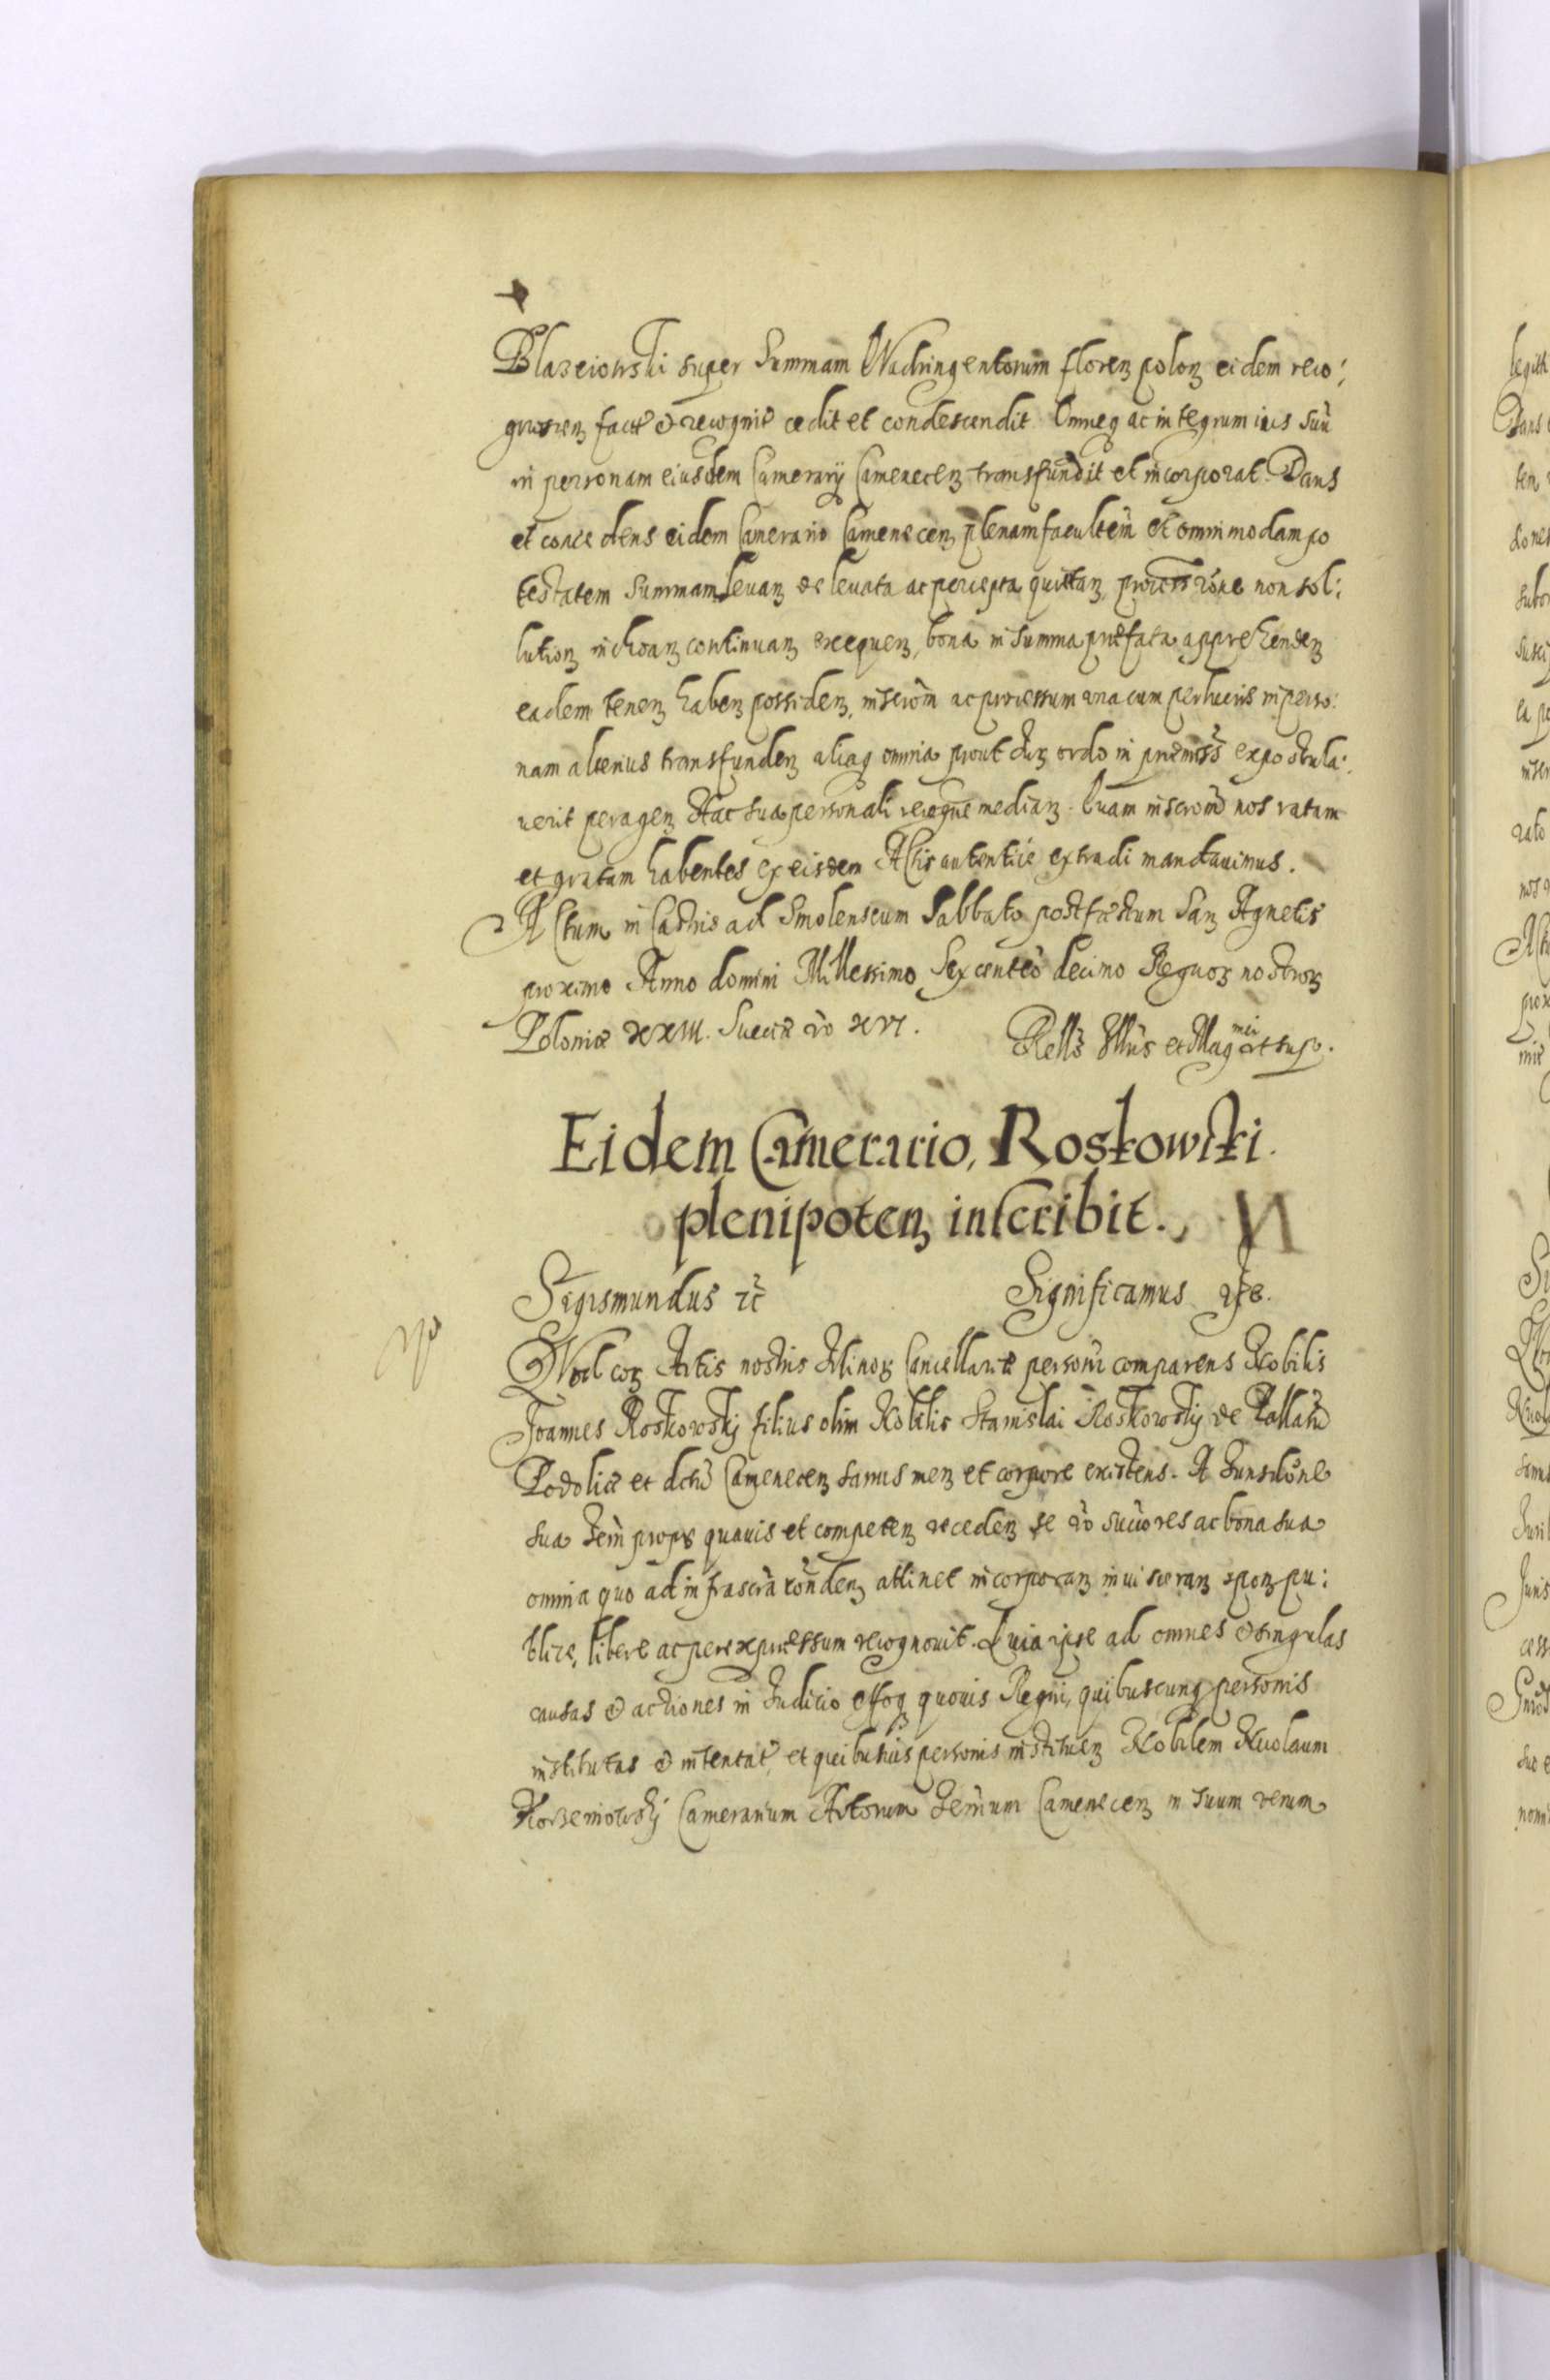 Blazeiowski super Summam Quadringentorum florenꝫ polonꝫ eidem reco:
facte et recognite cedit et condescendit Omneq ac integrum ius suū
in personam eiusdem Camerarij Camenecenꝫ transfundit et incorporat. Dans
et concedens eidem Camerario Camenecenꝫ plenam facultem̄ et omnimodam po
testatem Summam levanꝫ de levata ac percepta quittanꝫ, non sol:
lutionꝫ inchoanꝫ continuanꝫ exequenꝫ, bona in summa prefata apprehendenꝫ
eadem tenenꝫ habenꝫ possidenꝫ, inscrom̄ ac processum una cum perlucris in perso:
nam alterius transfundenꝫ aliaq omnia prout Iurꝫ ordo in premiss expostula:
verit peragenꝫ Hac sua personali recogne medianꝫ. Quam inscrom̄ nos ratam
et gratam habentes ex eisdem Actis autentice extradi mandavimus.
Actum in Castris ad Smolenscum Sabbato post festum San Agnetis
proximo Anno domini Millessimo Sexcenteo decimo Regnorꝫ nostrorꝫ
Poloniæ XXIII. Sueciæ vo XVI. Rello Illus et Mag mci ut supo.
Eidem Camerario, Roskowski
plenipotenꝫ inscribit.
Sigismundus etc Significamus
Quod corꝫ Actis nostris Minorꝫ Cancellariæ personr comparens Nobilis
Joannes Roskowskj filius olim Nobilis Stanislai Roskowskij de Pallatu
Podoliæ et dctu Camenecenꝫ sanus menꝫ et corpore existens. A Iursdōne
sua propr quavis et competenꝫ recedenꝫ se vo succores ac bona sua
omnia quo ad infrascra tōndenꝫ attinet incorporanꝫ invisceranꝫ sponꝫ pu:
blice, libere ac per expressum recognovit. Quia ipse ad omnes et singulas
causas et actiones in Iudicio offoq quovis Regni, quibuscunq personis
institutas et intentat, et quibusvis personis instituenꝫ Nobilem Nicolaum
Korzeniowskj Camerarium Actorum Terrum Camenecenꝫ in suum verum